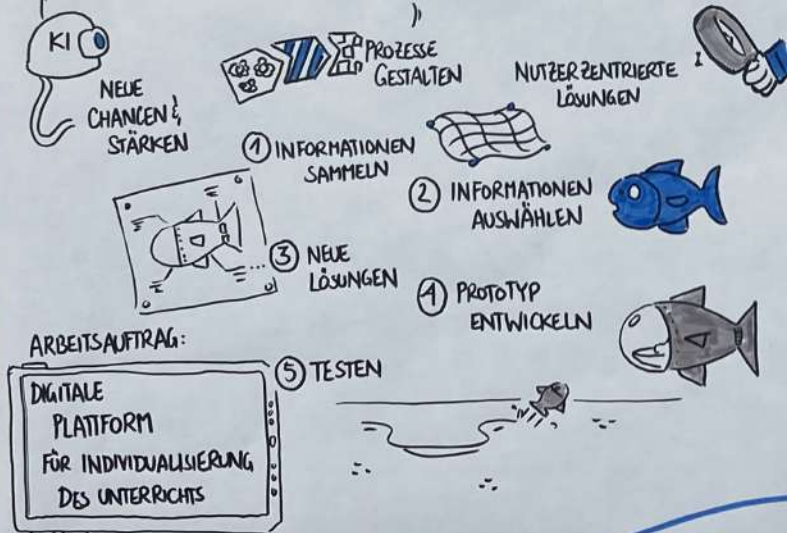 KI
NEUE
CHANCEN &
STÄRKEN
PROZESSE
GESTALTEN
NUTZERZENTRIERTE
LÖSUNGEN
① INFORMATIONEN
SAMMELN
② INFORMATIONEN
AUSWÄHLEN
③ NEUE
LÖSUNGEN
④ PROTOTYP
ENTWICKELN
ARBEITSAUFTRAG:
DIGITALE
PLATTFORM
FÜR INDIVIDUALISIERUNG
DES UNTERRICHTS
⑤ TESTEN